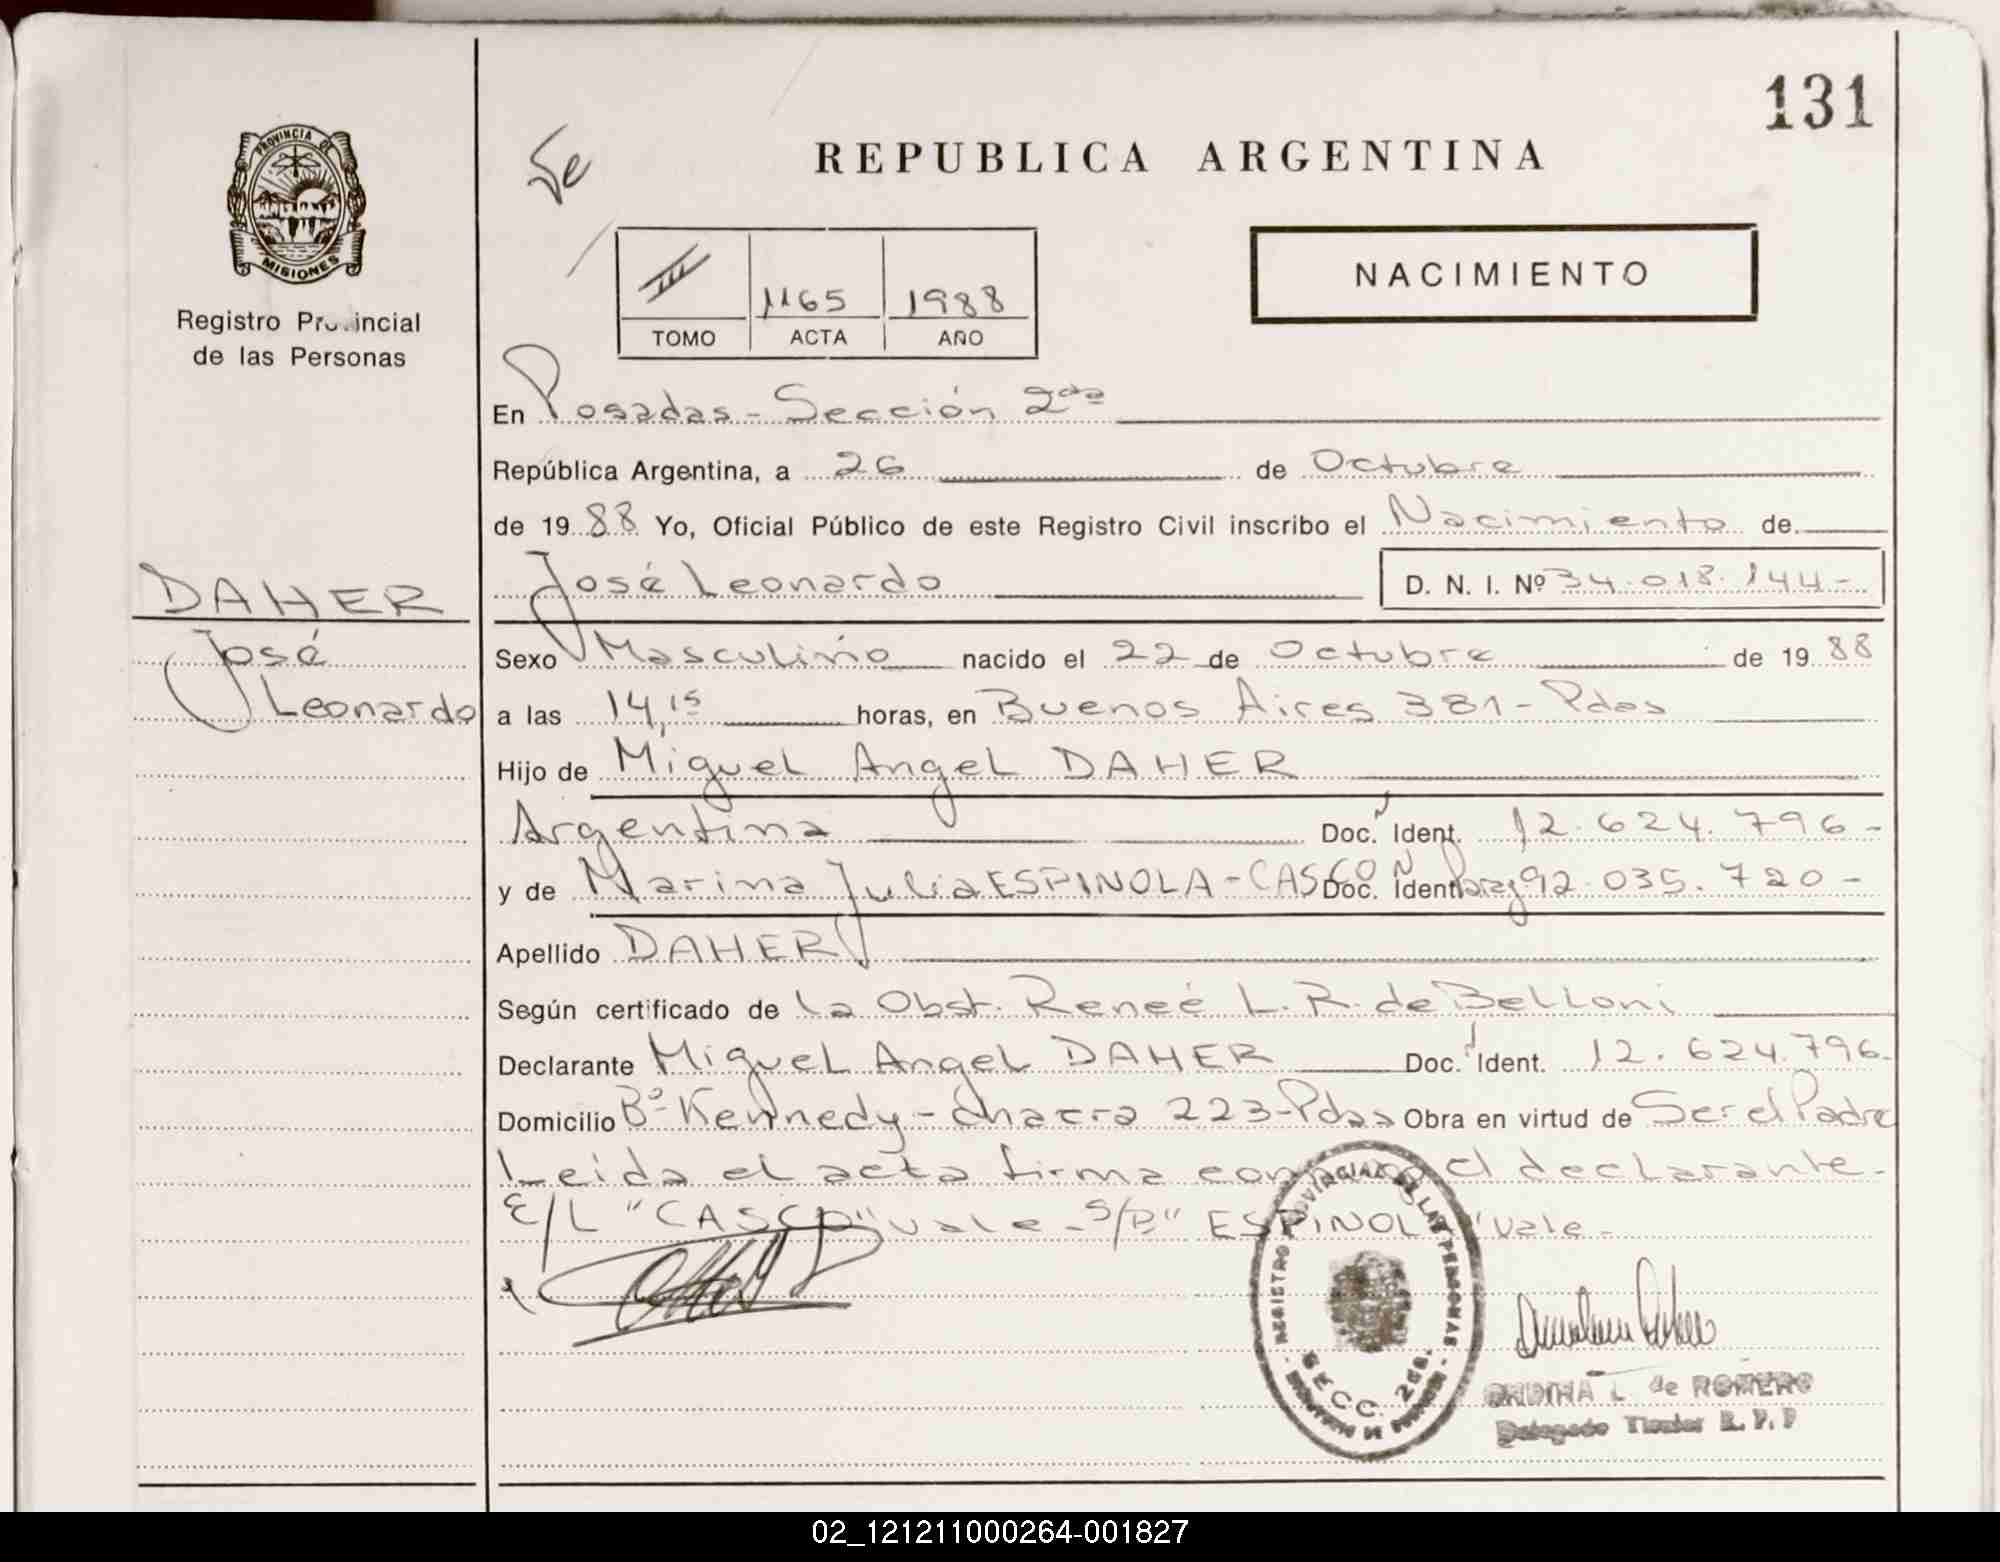 131
PROVINCIA DE
MISIONES
Registro Provincial
de las Personas
REPUBLICA ARGENTINA
NACIMIENTO
III 1165 1988
TOMO ACTA AÑO
En Posadas - Sección 2da
República Argentina, a 26 de Octubre
de 1988 Yo, Oficial Público de este Registro Civil inscribo el Nacimiento de
José Leonardo D. N. I. Nº 34.018.144-
DAHER
José
Leonardo
Sexo Masculino nacido el 22 de Octubre de 1988
a las 14,15 horas, en Buenos Aires 381 - Pdas
Hijo de Miguel Angel DAHER
Argentina Doc. Ident. 12.624.796-
y de Marina Julia ESPINOLA - CASCO Doc. Ident. Parag 92.035.720-
Apellido DAHER
Según certificado de la Obst. Reneé L. R. de Belloni
Declarante Miguel Angel DAHER Doc. Ident. 12.624.796-
Domicilio Bº Kennedy - chacra 223 - Pdas Obra en virtud de Ser el Padre
Leida el acta firma conmigo el declarante-
E/L "CASCO" vale - S/R "ESPINOLA" Vale-
REGISTRO PROVINCIAL DE LAS PERSONAS
SECC. 2da.
ONDINA L. de ROMERO
Delegado Titular R. P. P
02_121211000264-001827